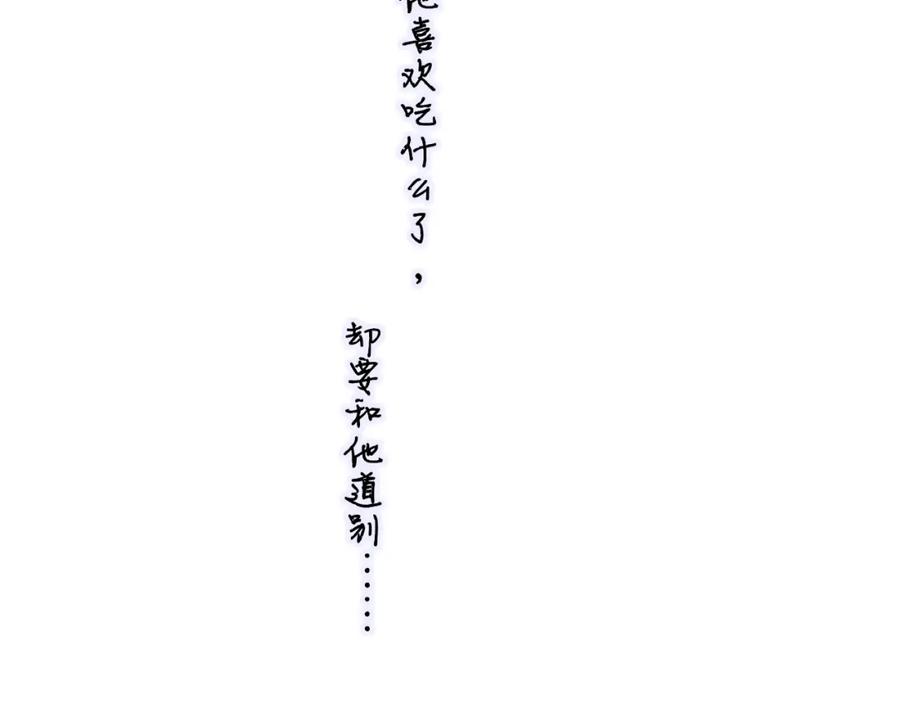 他喜欢吃什么了，
却要和他道别……